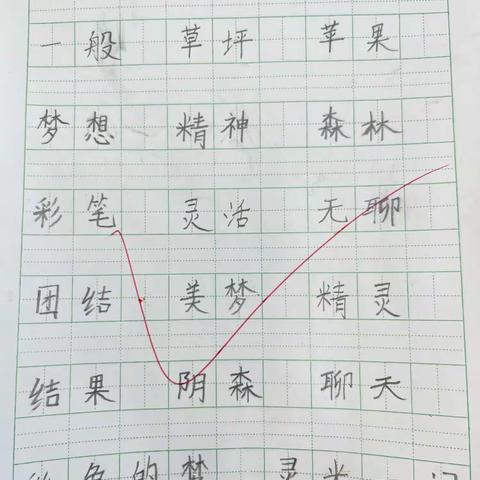 一般 草坪 苹果
梦想 精神 森林
彩笔 灵活 无聊
团结 美梦 精灵
结果 阴森 聊天
色的梦 灵